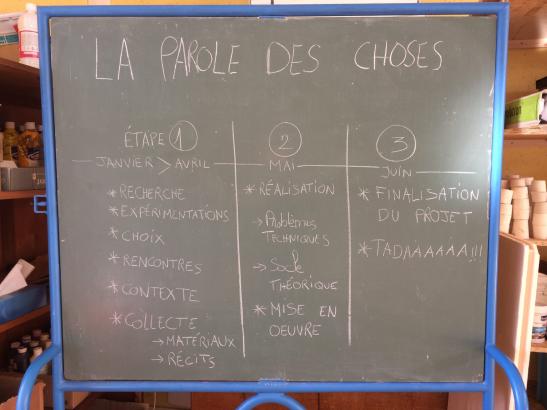 LA PAROLE DES CHOSES
ÉTAPE 1
JANVIER > AVRIL
* RECHERCHE
* EXPÉRIMENTATIONS
* CHOIX
* RENCONTRES
* CONTEXTE
* COLLECTE
→ MATÉRIAUX
→ RÉCITS
2
MAI
* RÉALISATION
→ Problèmes
TECHNIQUES
→ Socle
THÉORIQUE
* MISE EN
OEUVRE
3
JUIN
* FINALISATION
DU PROJET
* TADAAAAAA!!!